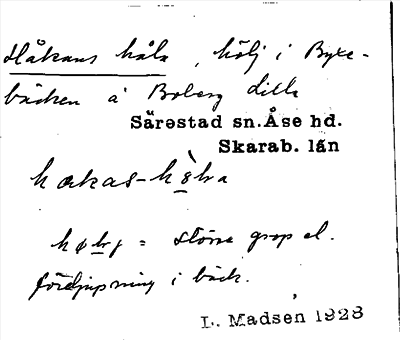 Håkans håla, hölj i Byxe-
bäcken å Boberg Lilla
Särestad sn. Åse hd.
Skarab. län
hœkas-hòla
hølj = större grop el.
fördjupning i bäck.
L. Madsen 1928